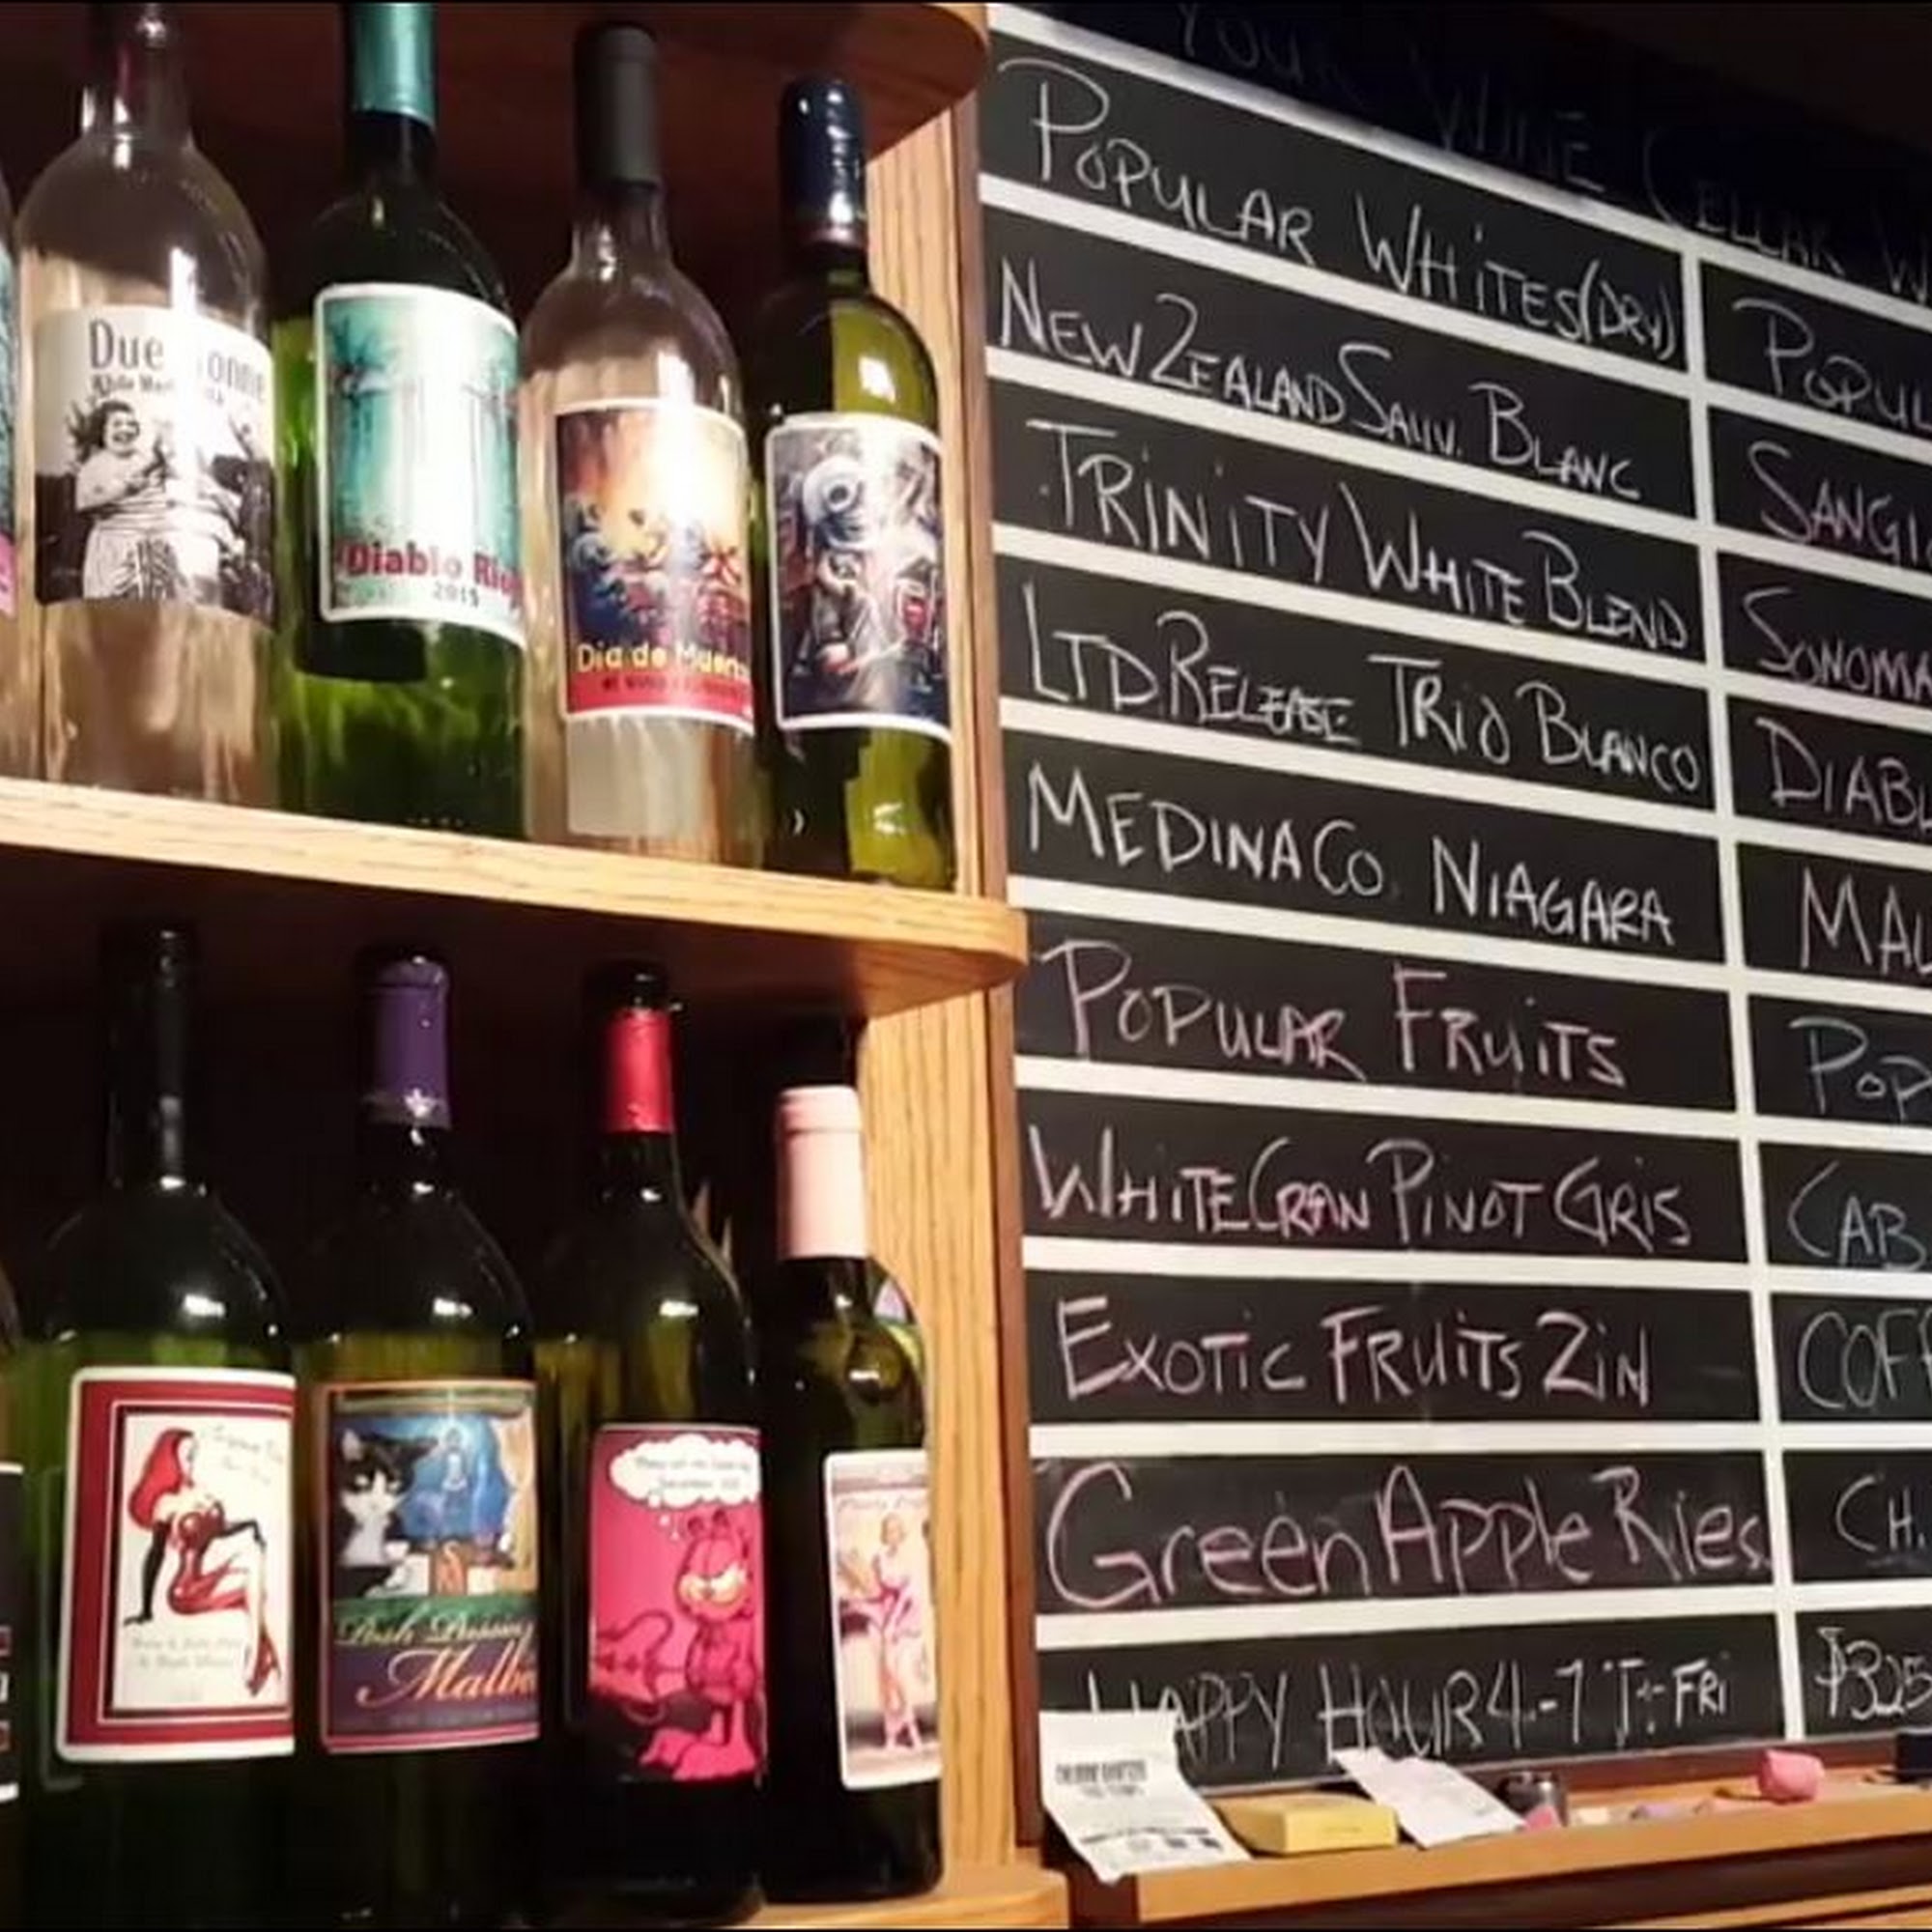 Due
Diablo
2015
Dia de
Malb
YOUR WINE CELLAR W
POPULAR WHITES (DRY)
NEW ZEALAND SAUV. BLANC
TRINITY WHITE BLEND
LTD RELEASE TRIO BLANCO
MEDINA CO NIAGARA
POPULAR FRUITS
WHITE CRAN PINOT GRIS
EXOTIC FRUITS ZIN
Green Apple Ries.
HAPPY HOUR 4-7 T-FRI
POPUL
SANGI
SONOMA
DIABL
MAL
POP
CAB
COFF
CH
$3.25